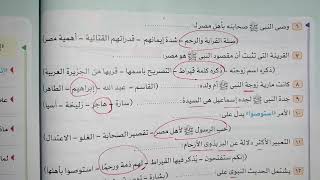 ٦ وصى النبي ﷺ صحابته بأهل مصر لـ
(صلة القرابة والرحم – شدة إيمانهم – قدراتهم القتالية – أهمية مصر)
٧ القرينة التي تثبت أن مقصود النبي ﷺ مصر:
(ذكره اسم زوجته – ذكره كلمة قيراط – التصريح باسمها – قربها من الجزيرة العربية)
٨ كانت مارية زوجة النبي ﷺ أم ولده:
(القاسم – عبد الله – إبراهيم – الطاهر)
٩ جدة النبي ﷺ زوجة إسماعيل هي السيدة
(سارة – هاجر – زليخة – آسيا)
١٠ الأمر "استوصوا" يدل على:
(حب الرسول ﷺ لأهل مصر – تقصير الصحابة – الغلو – الاعتدال)
١١ التعبير الأكثر دلالة عن البر بذوي الأرحام
(إنكم ستفتحون – يذكر فيها القيراط – لهم ذمة ورحمًا – استوصوا بأهلها)
١٢ يشتمل الحديث النبوي على